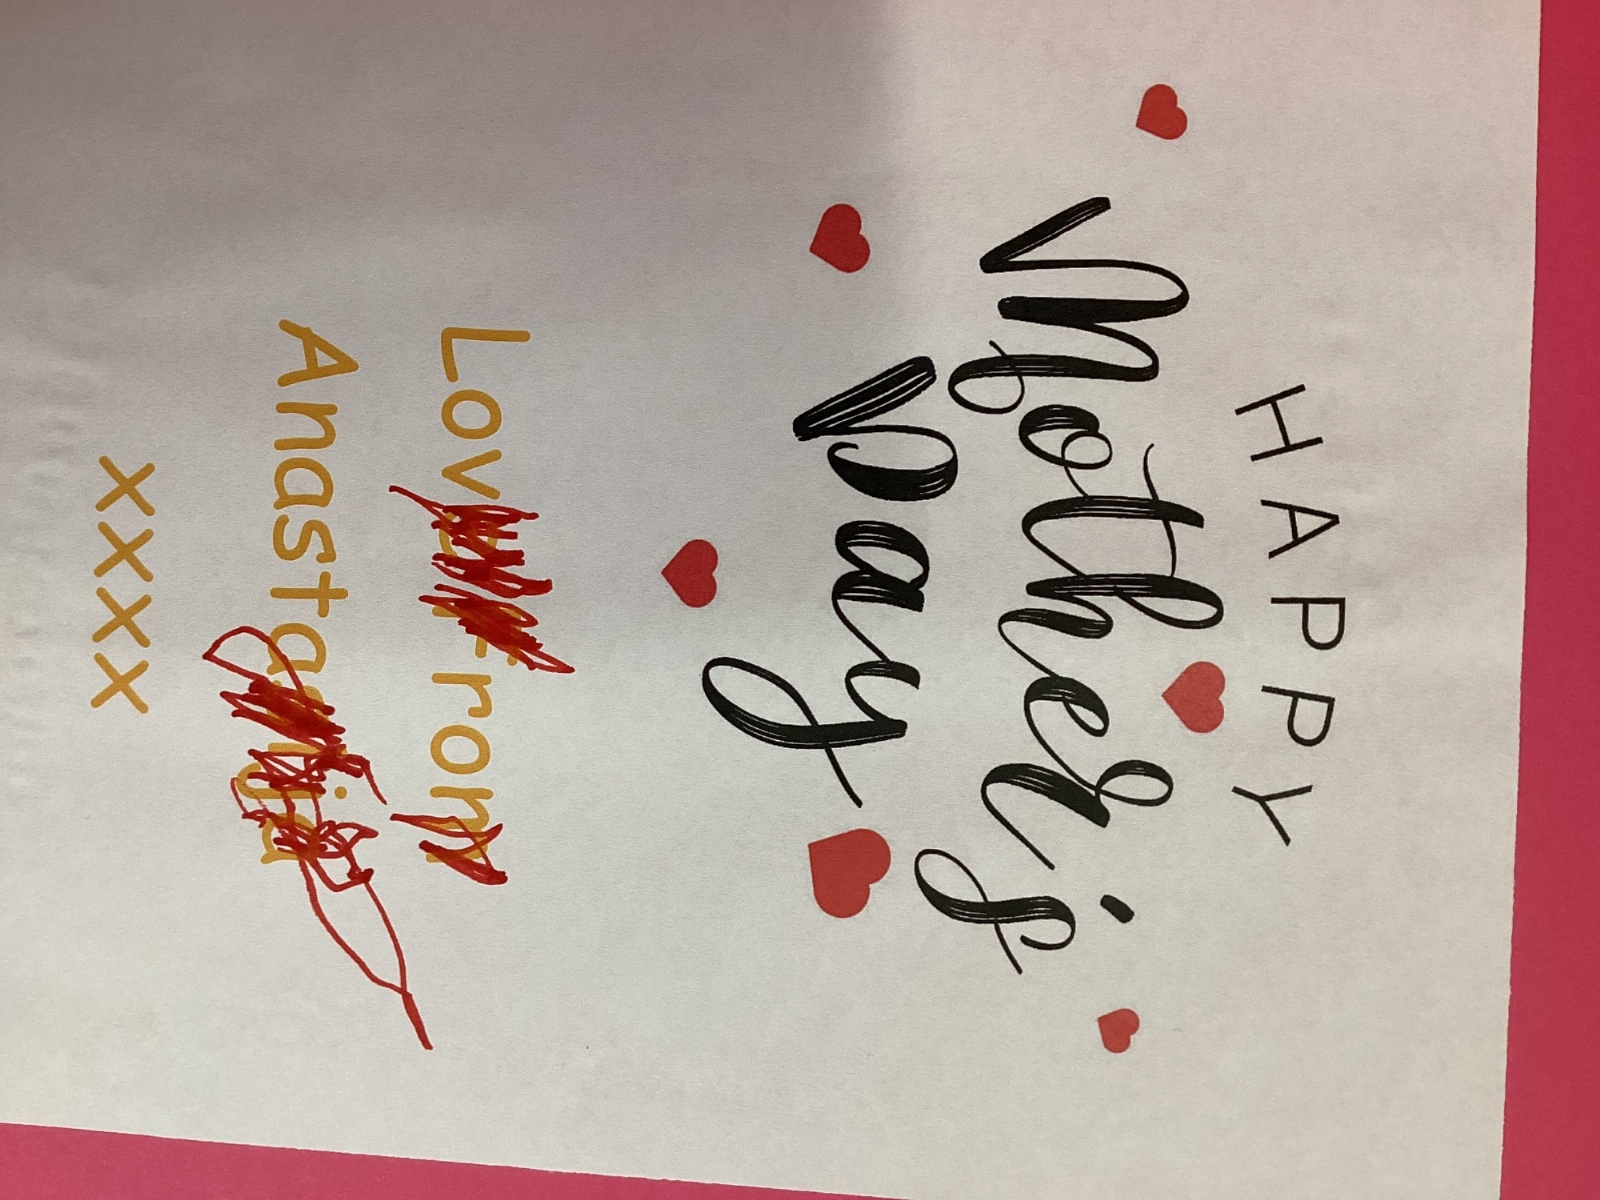 HAPPY
Mother's
Day
Love From
xxxx